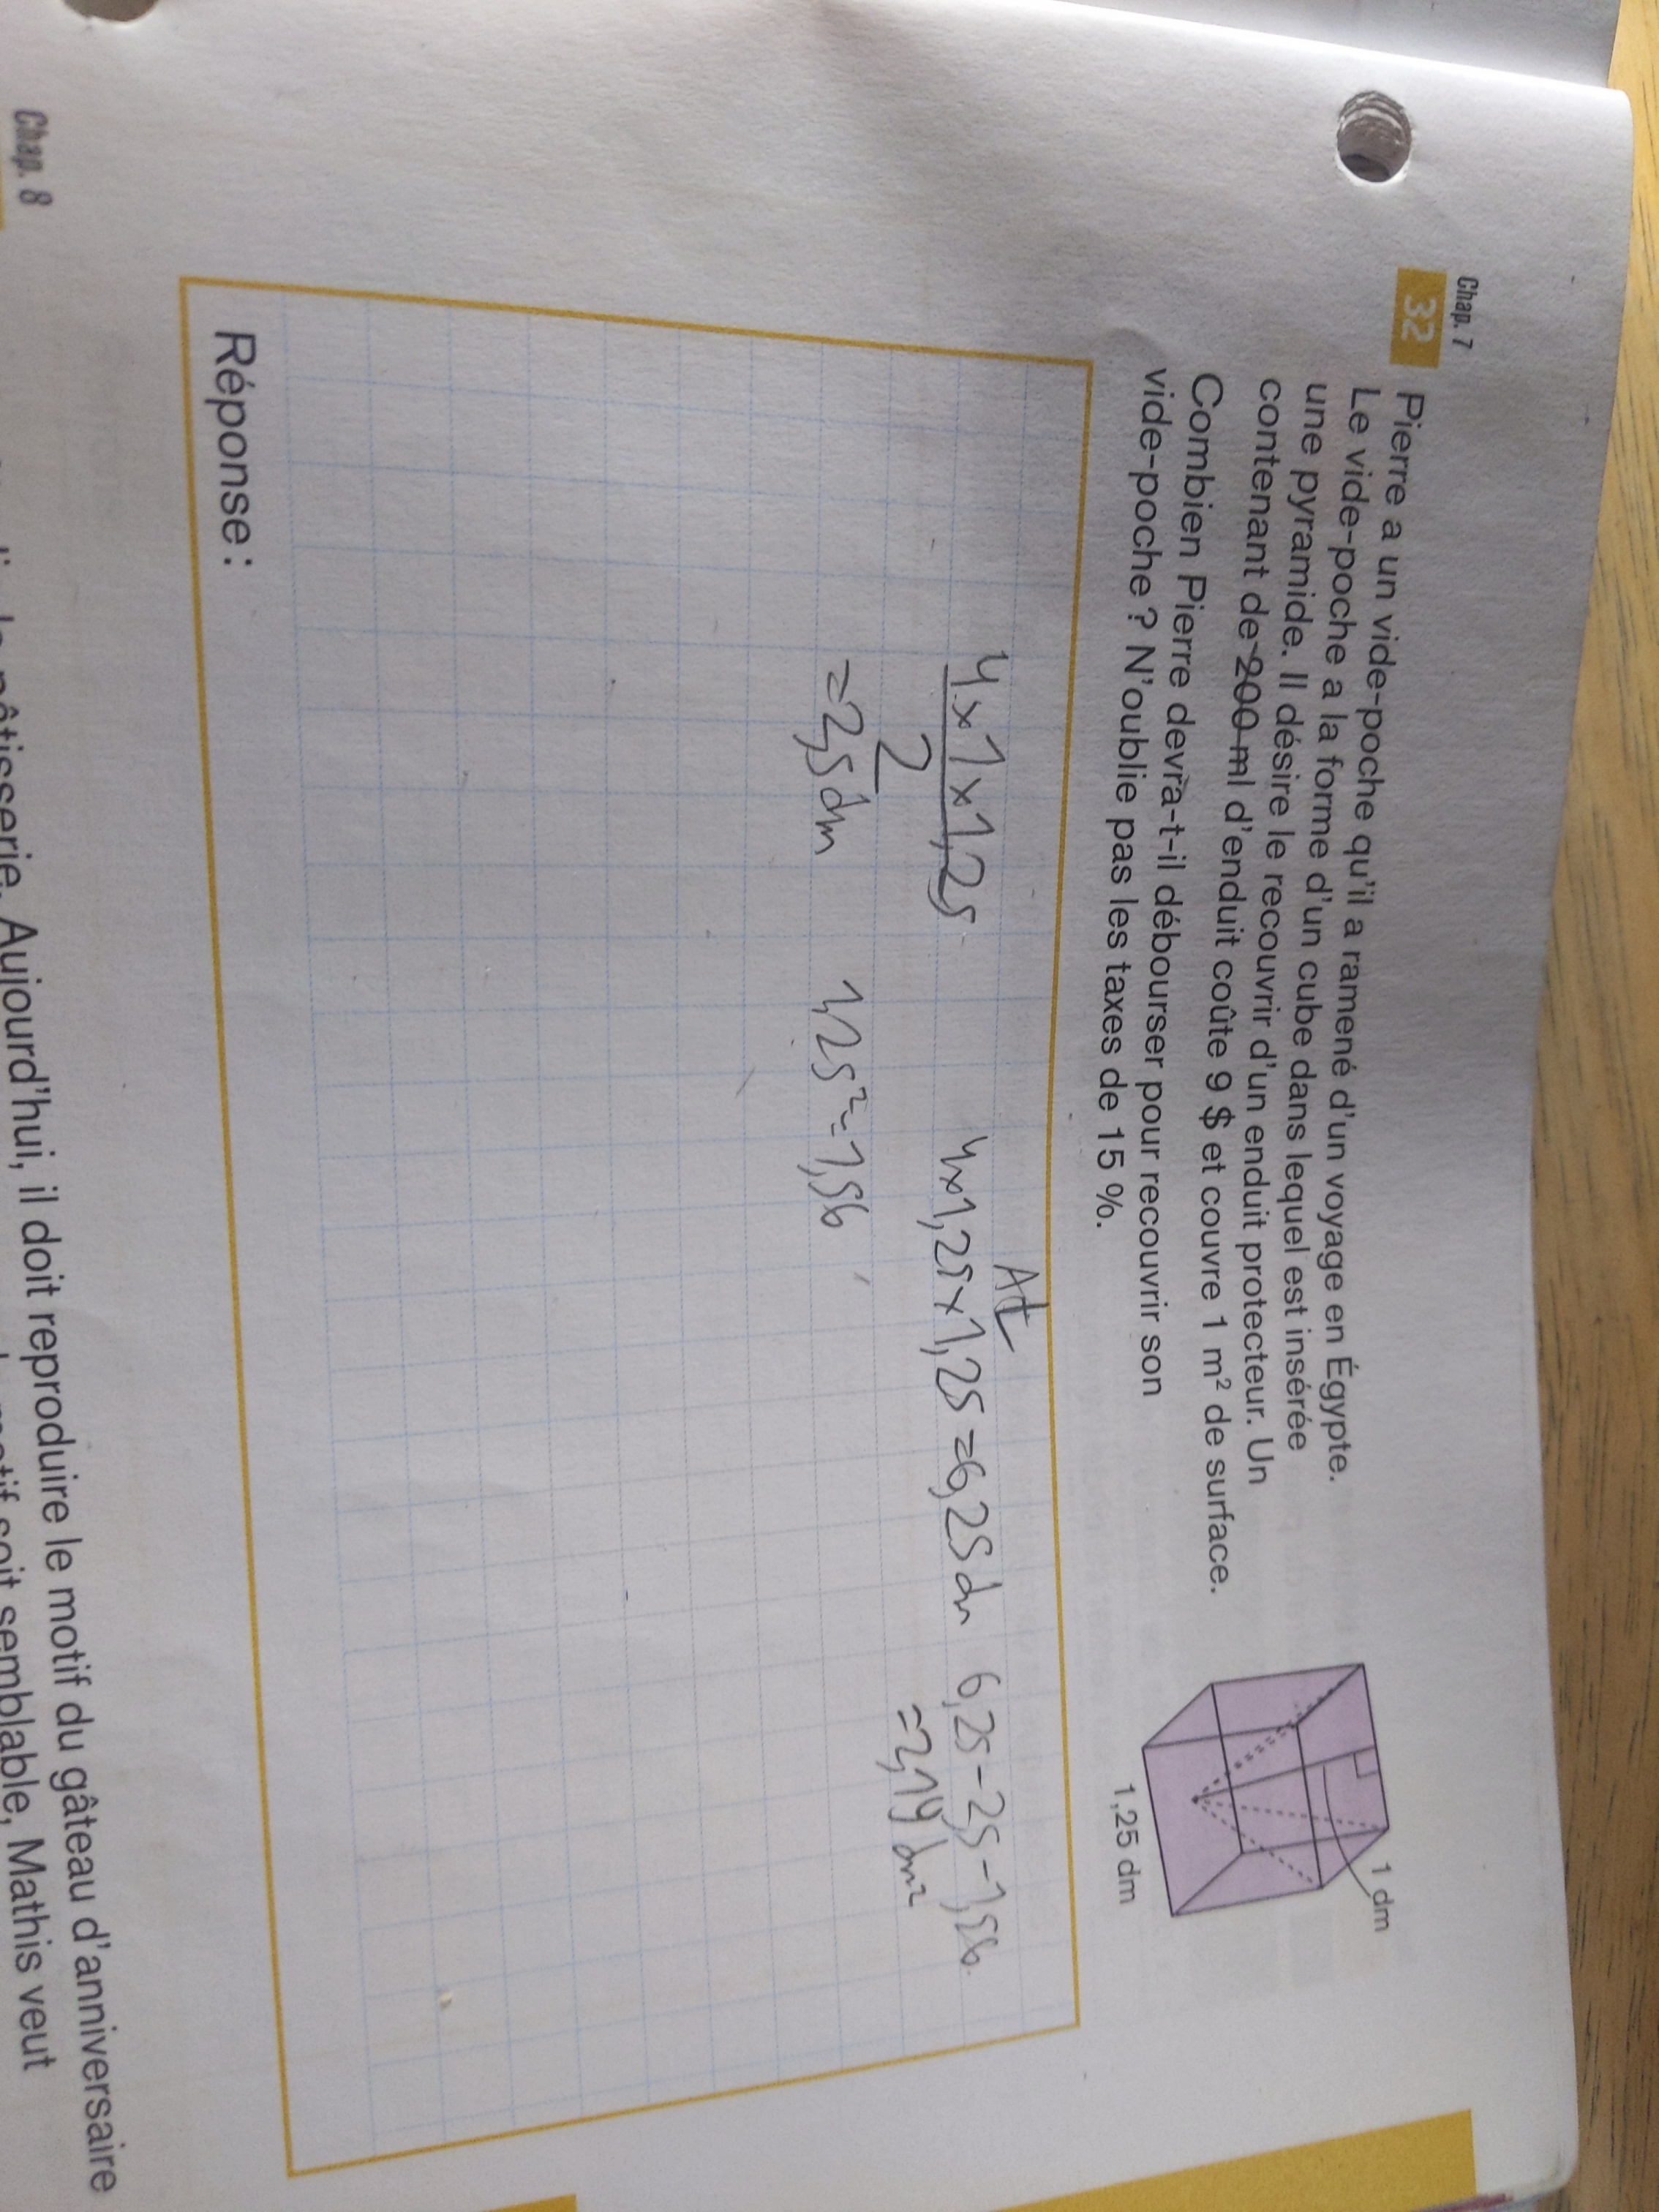 Chap. 7
32 Pierre a un vide-poche qu'il a ramené d'un voyage en Égypte.
Le vide-poche a la forme d'un cube dans lequel est insérée
une pyramide. Il désire le recouvrir d'un enduit protecteur. Un
contenant de 200 ml d'enduit coûte 9 $ et couvre 1 m² de surface.
Combien Pierre devra-t-il débourser pour recouvrir son
vide-poche ? N'oublie pas les taxes de 15 %.
1 dm
1,25 dm
At
4x1x1,25
2
=2,5dm
4x1,25x1,25=6,25dm
1,25²=1,56
6,25-2,5-1,56
=2,19dm²
Réponse :
Chap. 8
pâtisserie. Aujourd'hui, il doit reproduire le motif du gâteau d'anniversaire
motif soit semblable, Mathis veut